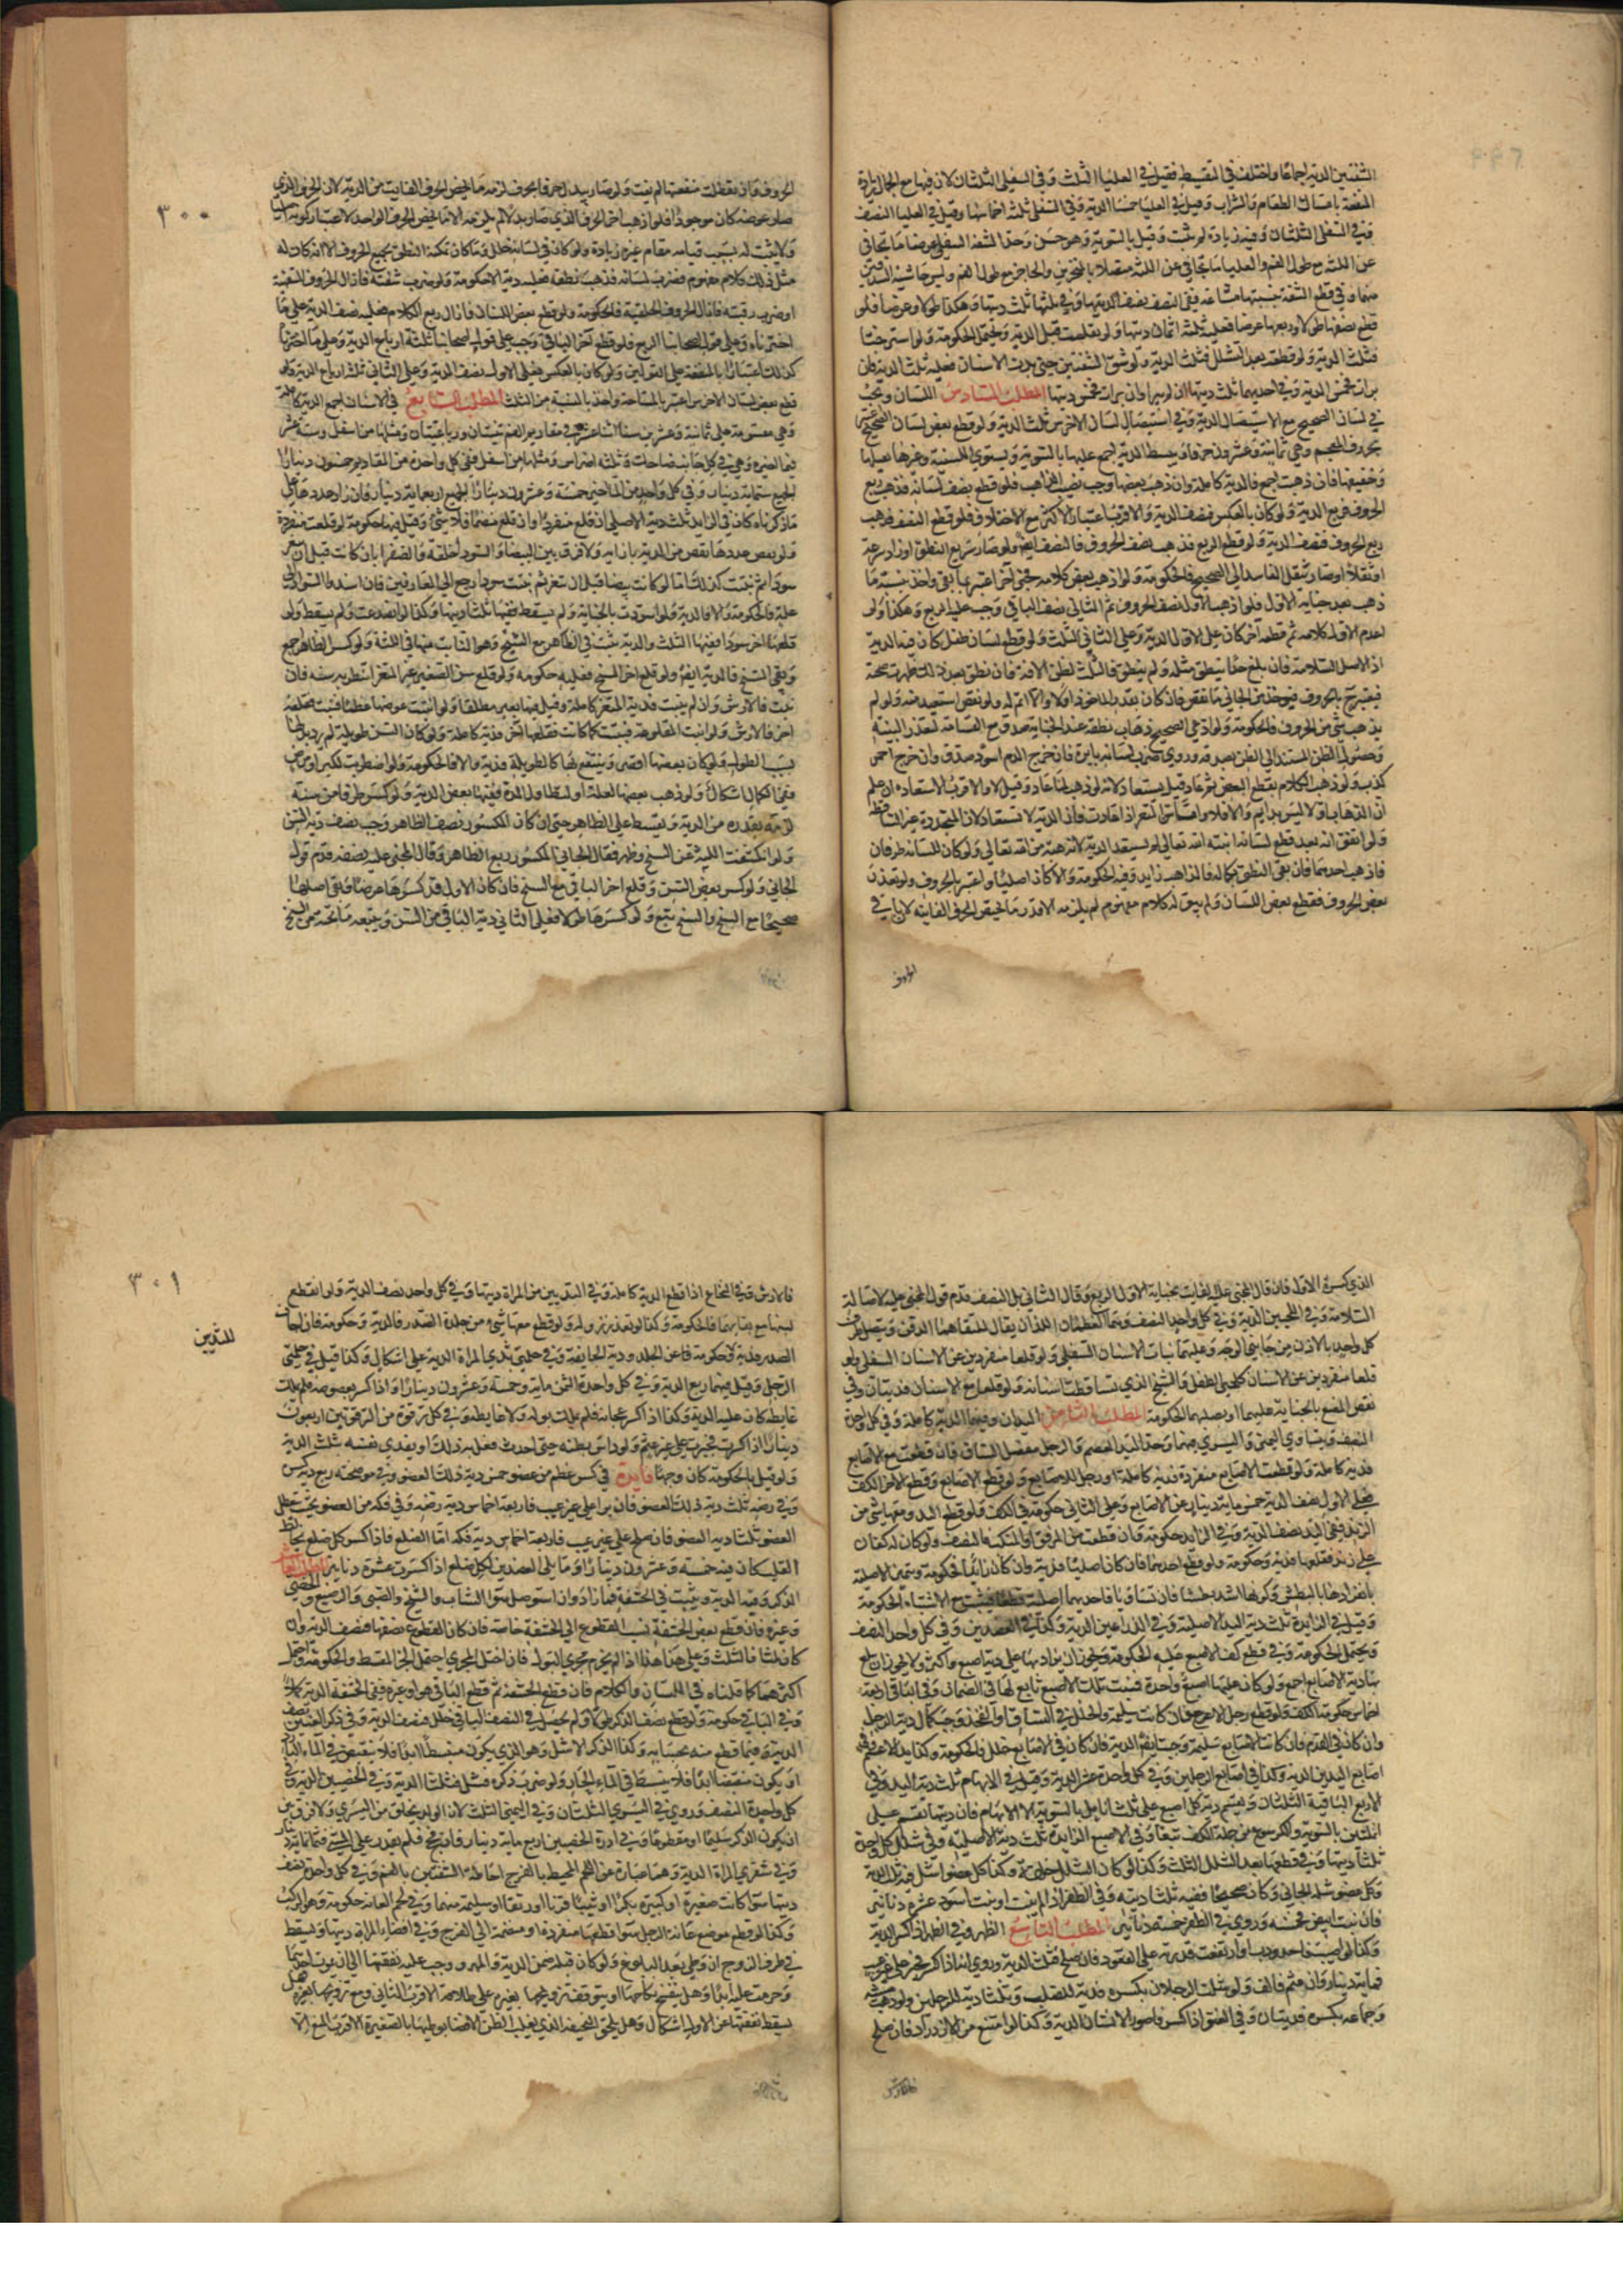 الشفتين الدية اجماعا واختلف في التقسيط فقيل في العليا الثلث وفي السفلى الثلثان لان فيها مع الجمال زيادة
المنفعة بامساك الطعام والشراب وقيل في العليا خمسا الدية وفي السفلى ثلثة اخماسها وقيل في العليا النصف
وفي السفلى الثلثان وفيه زيادة لم تثبت وقيل بالسوية وهو حسن وحد الشفة السفلى عرضا ما تجافى
عن اللثة مع طول الفم والعليا ما تجافى عن اللثة متصلا بالمنخرين والحاجز مع طول الفم وليس حاشية الشدقين
منها وفي قطع الشفة بنسبتها مساحة ففي النصف نصف ديتها وفي ثلثها ثلث ديتها وهكذا طولا وعرضا فلو
قطع نصفها طولا وربعها عرضا فعليه ثلثة اثمان ديتها ولو تقلصت قيل الدية ويحتمل الحكومة ولو استرختا
فثلثا الدية ولو قطعت بعد الشلل فثلث الدية ولو شق الشفتين حتى بدت الاسنان فعليه ثلث الدية فان
برات فخمس الدية وفي احديهما ثلث ديتها ان لم تبرا وان برات فخمس ديتها المطلب السادس اللسان ويجب
في لسان الصحيح مع الاستيصال الدية وفي استيصال لسان الاخرس ثلث الدية ولو قطع بعض لسان الصحيح اعتبر
بحروف المعجم وهي ثمانية وعشرون حرفا وتبسط الدية اجمع عليها بالسوية ويستوي اللسنية وغيرها ثقيلها
وخفيفها فان ذهبت اجمع فالدية كاملة وان ذهب بعضها وجب نصيب الذاهب فلو قطع نصف لسانه فذهب ربع
الحروف فربع الدية ولو كان بالعكس فنصف الدية والاقرب اعتبار الاكثر مع الاختلاف فلو قطع النصف فذهب
ربع الحروف فنصف الدية ولو قطع الربع فذهب نصف الحروف فالنصف ايضا ولو صار سريع النطق او زاد سرعة
او ثقلا او صار ينقل الفاسد الى الصحيح فالحكومة ولو اذهب بعض كلامه فجنى آخر اعتبر بما بقى واخذ بنسبة ما
ذهب بعد جناية الاول فلو اذهب الاول نصف الحروف ثم الثاني نصف الباقي وجب عليه الربع وهكذا ولو
اعدم الاول كلامه ثم قطعه آخر كان على الاول الدية وعلى الثاني الثلث ولو قطع لسان طفل كان فيه الدية
اذ الاصل السلامة فان بلغ حدا ينطق مثله ولم ينطق فالثلث لظن الافة فان نطق بعد ذلك ظهرت صحته
فيعتبر بالحروف فيوخذ من الجاني ما نقص فان كان بقدر الماخوذ اولا والا اتم له ولو نقص استعيد منه ولو لم
يذهب شيء من الحروف فالحكومة ولو ادعى الصحيح ذهاب نطقه عند الجناية صدق مع القسامة لتعذر البينة
وحصول الظن المستند الى الظن بصدقه وروي ضرب لسانه بابرة فان خرج الدم اسود صدق وان خرج احمر
كذب ولو ذهب الكلام بقطع البعض ثم عاد قيل يستعاد لانه لو ذهب لما عاد وقيل لا والاقرب الاستعادة ان علم
ان الذهاب اولا ليس بدايم والا فلا واما سن المثغر اذا عادت فان الدية لا تستعاد لان المتجددة غير الساقطة
ولو اتفق انه بعد قطع لسانه انبته الله تعالى لم يستعد الدية لانه هبة من الله تعالى ولو كان للسانه طرفان
فاذهب احدهما فان بقى النطق بكماله فالذاهب زايد وفيه الحكومة والا كان اصليا واعتبر بالحروف ولو تعذر
بعض الحروف بقطع بعض اللسان ولم يبق له كلام مفهوم لم يلزمه الا قدر ما يخص الحرف الفايتة لان باقي
الحروف
٣٠٠
الحروف وان تعطلت منفعتها لم تفت ولو صار يبدل حرفا بحرف لزمه ما يخص الحرف الفايت من الدية لان الحرف الذي
صار عوضه كان موجودا فلو اذهب آخر الحرف الذي صار بدلا لم يلزمه الا ما يخص الحرف الواحد لا اعتبار كونه اصليا
ولا يثبت له بسبب قيامه مقام غيره زيادة ولو كان في لسانه خلل وما كان يمكنه النطق بجميع الحروف الا انه كان له
مثل ذلك كلام مفهوم فضرب لسانه فذهب نطقه فعليه دية الا حكومة ولو ضرب شفته فازال الحروف الشفية
او ضرب رقبته فازال الحروف الحلقية فالحكومة ولو قطع بعض اللسان فازال ربع الكلام فعليه نصف الدية على ما
اخترناه وعلى قول اصحابنا الربع فلو قطع آخر الباقي وجب على قول اصحابنا ثلثة ارباع الدية وعلى ما اخترناه
كذلك اعتبارا بالمنفعة على القولين ولو كان بالعكس فعلى الاول نصف الدية وعلى الثاني ثلثة ارباع الدية ولو
قطع بعض لسان الاخرس اعتبر بالمساحة واخذ بالنسبة من الثلث المطلب السابع في الاسنان اجمع الدية كاملة
وهي مقسومة على ثمانية وعشرين سنا اثنا عشر في مقاديم الفم ثنيتان ورباعيتان ومثلها من اسفل وستة عشر
في مآخيره وهي في كل جانب ضاحك وثلثة اضراس ومثلها من اسفل ففي كل واحدة من المقاديم خمسون دينارا
الجميع ستمائة دينار وفي كل واحد من المآخير خمسة وعشرون دينارا الجميع اربعمائة دينار فان زاد عددها على
ما ذكرناه كان في الزايد ثلث دية الاصلي ان قلع منفردا وان قلع منضما فلا شيء وقيل فيها حكومة لو قلعت منفردة
ولو نقص عددها نقص من الدية بازائه ولا فرق بين البيضاء والسوداء خلقة والصفراء بان كانت قبل ان يثغر
سوداء ثم نبتت كذلك اما لو كانت بيضا قبل ان تثغر ثم نبتت سوداء رجع الى العارفين فان اسندوا السواد الى
علة فالحكومة والا فالدية ولو اسودت بالجناية ولم يسقط ففيها ثلثا ديتها وكذا لو انصدعت ولم يسقط ولو
قلعها آخر سوداء ففيها الثلث والدية يثبت في الظاهر مع السنخ وهو النابت منها في اللثة ولو كسر الظاهر اجمع
وبقى السنخ فالدية ايضا ولو قلع آخر السنخ فعليه حكومة ولو قلع سن الصغير غير المثغر انتظر به سنة فان
نبتت فالارش وان لم ينبت فدية المثغر كاملة وقيل فيها بعير مطلقا ولو انبتت عوضها عظما فنبت فقلعه
آخر فالارش ولو انبت المقلوعة فثبتت كما كانت فقلعها آخر فدية كاملة ولو كان السن طويلة لم يزد بدلها
بسبب الطول ولو كان بعضها اقصر وينتفع بها كالطويلة فدية والا فالحكومة ولو اضطربت لكبر او مرض
ففي اكمال اشكال ولو ذهب بعضها لعلة او لتطاول المدة ففيها بعض الدية ولو كسر طرفا من سنه
لزمه بقدره من الدية ويقسط على الظاهر حتى ان كان المكسور نصف الظاهر وجب نصف دية السن
ولو انكشفت اللثة عن السنخ وظهر فقال الجاني المكسور ربع الظاهر وقال المجني عليه نصفه قدم قول
الجاني ولو كسر بعض السن وقلع آخر الباقي مع السنخ فان كان الاول قد كسرها عرضا وبقي اصلها
صحيحا مع السنخ والسنخ تبع ولو كسرها طولا فعلى الثاني دية الباقي من السن ويتبعه ما تحته من السنخ
الذي كسره الاول فان قال المجني عليه الفايت بجناية الاول الربع وقال الثاني بل النصف قدم قول المجني عليه لاصالة
السلامة وفي اللحيين الدية وفي كل واحد النصف وهما العظمان اللذان يقال لملتقاهما الذقن ويتصل طرف
كل واحد بالاذن من جانبي الوجه وعليهما نبات الاسنان السفلى ولو قلعا منفردين عن الاسنان السفلى ولو
قلعا منفردين عن الاسنان كلحيي الطفل والشيخ الذي تساقطت اسنانه ولو قلعا مع الاسنان فديتان وفي
نقص المضغ بالجناية عليهما او تصلبهما الحكومة المطلب الثامن اليدان وفيهما الدية كاملة وفي كل واحدة
النصف ويتساوى اليمنى واليسرى فيهما وحد اليد المعصم والرجل مفصل الساق فان قطعت مع الاصابع
فدية كاملة ولو قطعت الاصابع منفردة فدية كاملة او رجل للاصابع ولو قطع الاصابع وقطع الآخر الكف
فعلى الاول نصف الدية خمسمائة دينار عن الاصابع وعلى الثاني حكومة في الكف ولو قطع اليد ومعها شيء من
الزند ففي اليد نصف الدية وفي الزايد حكومة وان قطعت من المرفق او المنكب فالنصف ولو كان له كفان
على زند فقطعهما فدية وحكومة ولو قطع احدهما فان كان اصليا فدية وان كان زايدا فحكومة وتتميز الاصلية
بانفرادها بالبطش وكونها اشد بطشا فان تساويا فاحديهما اصلية قطعا فيثبت مع الاشتباه الحكومة
وقيل في الزايدة ثلث دية اليد الاصلية وفي الذراعين الدية وكذا في العضدين وفي كل واحد النصف
ويحتمل الحكومة وفي قطع كف لا اصبع عليه الحكومة ولا يجوز ان يزاد بها على دية اصبع واكثر ولا يجوز ان تبلغ
بها دية الاصابع اجمع ولو كان عليها اصبع واحدة فنبت تلك الاصبع تابع لها في الضمان وفي الباقي اربعة
اخماس حكومة الكف ولو قطع رجل الاعرج فان كانت سليمة والخلل في الساق او الفخذ وجب كمال دية الرجل
وان كان في القدم فان كانت الاصابع سليمة وجب ايضا الدية فان كان في الاصابع خلل فالحكومة وكذا يد الاعسم وفي
اصابع اليدين الدية وكذا في اصابع الرجلين وفي كل واحدة عشر الدية وقيل في الابهام ثلث دية اليد وفي
الاربع الباقية الثلثان ويقسم دية كل اصبع على ثلث انامل بالسوية الا الابهام فان ديتها تقسم على
اثنتين بالسوية والكرسوع من جملة الكف تبعا وفي الاصبع الزايدة ثلث دية الاصلية وفي شلل كل واحدة
ثلثا ديتها وفي قطعها بعد الشلل الثلث وكذا لو كان الشلل خلقة وكذا كل عضو اشل فيه ثلث الدية
وكل عضو شله الجاني وكان صحيحا ففيه ثلثا ديته وفي الظفر اذا لم ينبت او نبت اسود عشرة دنانير
فان نبت ابيض فخمسة وروي في الظفر خمسة دنانير المطلب التاسع الظهر وفي الظهر اذا كسر الدية
وكذا لو اصيب فاحدودب او ارتفعت قدرته على القعود فان صلح فثلث الدية وروي انه اذا كسر فجبر على غير عيب
فمائة دينار وان عثم فالف ولو شلت الرجلان بكسره فدية للصلب وثلثا دية للرجلين ولو ذهب مشيه
وجماعه بكسره فديتان وفي العنق اذا كسر فاصور الانسان الدية وكذا لو امتنع من الازدراد فان صلح
فالارش
٣٠١
للثديين
فالارش وفي النخاع اذا قطع الدية كاملة وفي الثديين من المراة ديتها وفي كل واحد نصف الدية ولو انقطع
لبنهما مع بقايهما فالحكومة وكذا لو تعذر نزوله ولو قطع معهما شيء من جلدة الصدر فالدية وحكومة فان اجاف
الصدر فدية وحكومة فاعن الجلد ودية الجايفة وفي حلمتي ثدي المراة الدية على اشكال وكذا قيل في حلمتي
الرجل وقيل فيهما ربع الدية وفي كل واحدة الثمن مائة وخمسة وعشرون دينارا واذا كسر بعصوصه فلم يملك
غايطه كان عليه الدية وكذا اذا كسر عجانه فلم يملك بوله ولا غايطه وفي كل ترقوة من الترقوتين اربعون
دينارا اذا كسرت فجبرت على غير عثم ولو داس بطنه حتى احدث فعل به ذلك او يفدي نفسه بثلث الدية
ولو قيل بالحكومة كان وجها فايدة في كسر عظم من عضو خمس دية ذلك العضو وفي موضحته ربع دية كسره
وفي رضه ثلث دية ذلك العضو فان برا على غير عيب فاربعة اخماس دية رضه وفي فكه من العضو بحيث يتعطل
العضو ثلثا دية العضو فان صلح على غير عيب فاربعة اخماس دية فكه اما الضلع فاذا كسر كل ضلع يخالط
القلب كان فيه خمسة وعشرون دينارا وما يلي العضدين لكل ضلع اذا كسرت عشرة دنانير المطلب العاشر
الذكر وفيه الدية ويثبت في الحشفة فما زاد وان استوصل سواء الشاب والشيخ والصبي والرضيع والخصي
وغيره فان قطع بعض الحشفة نسب المقطوع الى الحشفة خاصة فان كان المقطوع نصفها فنصف الدية وان
كان ثلثا فالثلث وعلى هذا هذا اذا لم يخرم مجرى البول فان اختل المجرى احتمل الجزء المقسط والحكومة واحتمل
اكثرهما كما قلناه في اللسان والكلام فان قطع الحشفة ثم قطع الباقي هو او غيره ففي الحشفة الدية كاملة
وفي الباقي حكومة ولو قطع نصف الذكر طولا ولم يحصل في النصف الباقي خلل فنصف الدية وفي ذكر العنين ثلث
الدية وفيما قطع منه بحسابه وكذا الذكر الاشل وهو الذي يكون منبسطا ابدا فلا ينقبض في الماء البارد
او يكون منقبضا ابدا فلا ينبسط في الماء الحار ولو ضرب ذكره فشل فثلثا الدية وفي الخصيتين الدية وفي
كل واحدة النصف وروي في اليسرى الثلثان وفي اليمنى الثلث لان الولد يخلق من اليسرى ولا فرق بين
ان يكون الذكر سليما او مقطوعا وفي ادرة الخصيتين اربع مائة دينار فان فحج فلم يقدر على المشي فثمانمائة دينار
وفي شفري المراة الدية وهما عبارة عن اللحم المحيط بالفرج احاطة الشفتين بالفم وفي كل واحدة نصف
ديتها سواء كانت صغيرة او كبيرة بكرا او ثيبا قرنا او رتقا او سليمة منهما وفي لحم العانة حكومة وهو الركب
وكذا لو قطع موضع عانة الرجل سواء قطعهما منفردة او منضمة الى الفرج وفي افضاء المراة ديتها ويسقط
في طرف الزوج ان وطى بعد البلوغ ولو كان قبله ضمن الدية والمهر ووجب عليه نفقتها الى ان يموت احدهما
وحرمت عليه ابدا وهل ينفسخ نكاحها او يتوقف تزويجها بغيره على طلاقه الاقرب الثاني ومع تزويجها بغيره هل
يسقط نفقتها عن الاول اشكال وهل يلحق النحيفة الذي يغلب الظن الافضاء بوطيها بالصغيرة الاقرب المنع الا